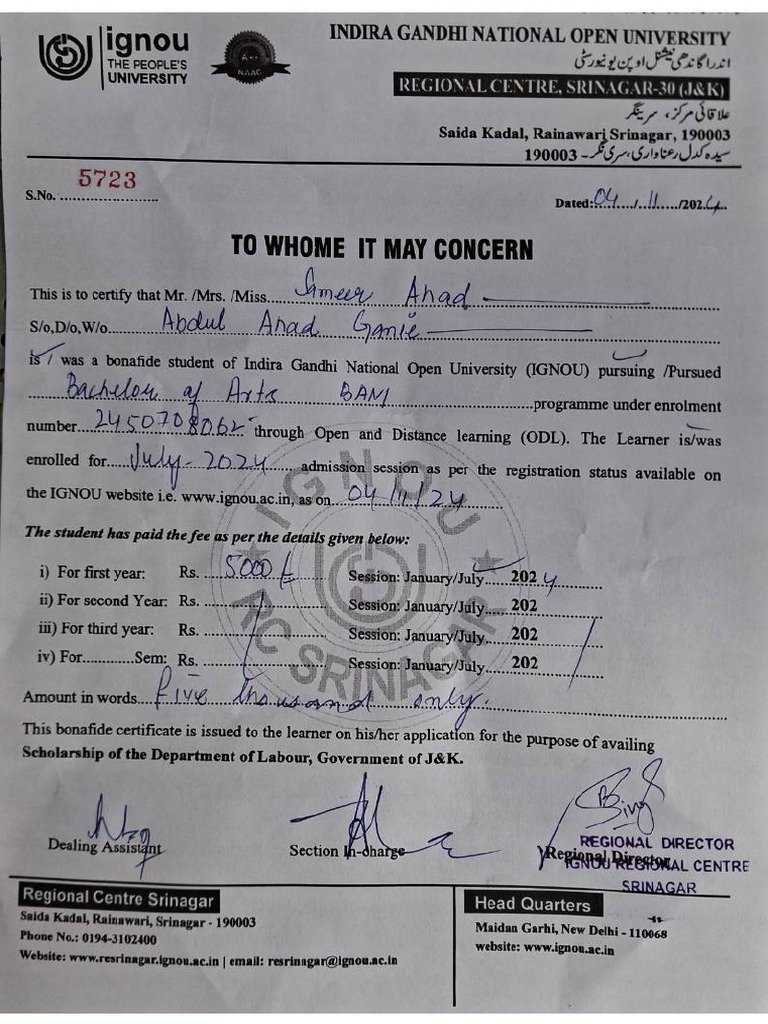 ignou
THE PEOPLE'S
UNIVERSITY
A++
NAAC
INDIRA GANDHI NATIONAL OPEN UNIVERSITY
اندرا گاندھی نیشنل اوپن یونیورسٹی
REGIONAL CENTRE, SRINAGAR-30 (J&K)
علاقائی مرکز، سرینگر
Saida Kadal, Rainawari Srinagar, 190003
سیدہ کدل رعناواری، سری نگر - 190003
S.No. 5723
Dated: 04/11/2024
TO WHOME IT MAY CONCERN
This is to certify that Mr. /Mrs. /Miss. Sameer Ahad
S/o,D/o,W/o. Abdul Ahad Ganie
is / was a bonafide student of Indira Gandhi National Open University (IGNOU) pursuing /Pursued
Bachelor of Arts BAM programme under enrolment
number 2450708062 through Open and Distance learning (ODL). The Learner is/was
enrolled for July-2024 admission session as per the registration status available on
the IGNOU website i.e. www.ignou.ac.in, as on 04/11/24
The student has paid the fee as per the details given below:
i) For first year: Rs. 5000/= Session: January/July 2024
ii) For second Year: Rs. Session: January/July 202
iii) For third year: Rs. Session: January/July 202
iv) For............Sem: Rs. Session: January/July 202
IGNOU
RC SRINAGAR
Amount in words Five thousand only.
This bonafide certificate is issued to the learner on his/her application for the purpose of availing
Scholarship of the Department of Labour, Government of J&K.
Dealing Assistant
Section In-charge
Regional Director
REGIONAL DIRECTOR
IGNOU REGIONAL CENTRE
SRINAGAR
Regional Centre Srinagar
Saida Kadal, Rainawari, Srinagar - 190003
Phone No.: 0194-3102400
Website: www.rcsrinagar.ignou.ac.in | email: rcsrinagar@ignou.ac.in
Head Quarters
Maidan Garhi, New Delhi - 110068
website: www.ignou.ac.in